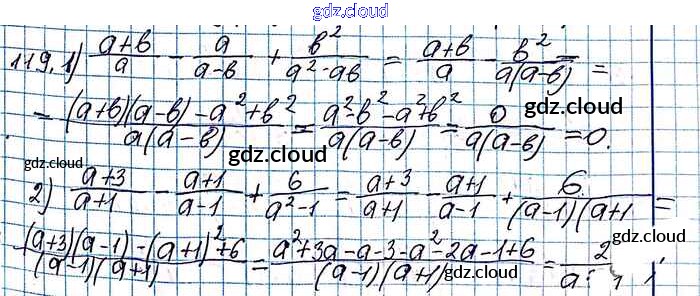 gdz.cloud
119. 1) (a+b)/a - a/(a-b) + b²/(a²-ab) = (a+b)/a - b²/(a(a-b)) =
gdz.cloud
= ((a+b)(a-b) - a² + b²)/(a(a-b)) = (a²-b²-a²+b²)/(a(a-b)) = 0/(a(a-b)) = 0.
gdz.cloud
gdz.cloud
gdz.cloud
2) (a+3)/(a+1) - (a+1)/(a-1) + 6/(a²-1) = (a+3)/(a+1) - (a+1)/(a-1) + 6/((a-1)(a+1 =
gdz.cloud
((a+3)(a-1) - (a+1)² + 6)/((a-1)(a+1)) = (a²+3a-a-3-a²-2a-1+6)/((a-1)(a+1)) = 2/a
gdz.cloud